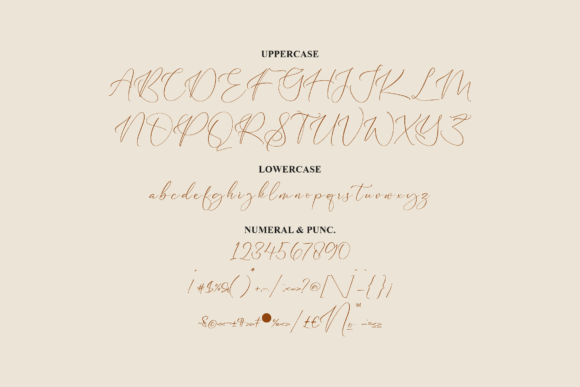 UPPERCASE
ABCDEFGHIJKLM
NOPQRSTUVWXYZ
LOWERCASE
abcdefghijklmnopqrstuvwxyz
NUMERAL & PUNC.
1234567890